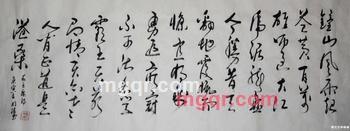 鐘山風雨起
蒼黄百万
雄师过大江
虎踞龙盘
今勝昔天
翻地覆慨
而慷宜将剩
勇追窮寇
不可沽名学
霸王天若
有情天亦老
人间正道是
滄桑